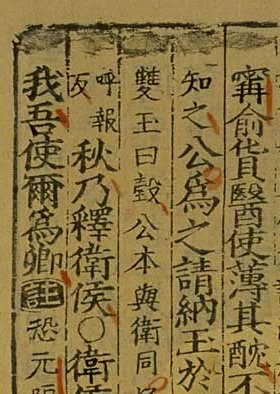 甯俞貨醫使薄其酖不
知之公為之請納玉於
雙玉曰瑴公本與衛同
呼報反秋乃釋衛侯○衛侯
我吾使爾為卿註恐元